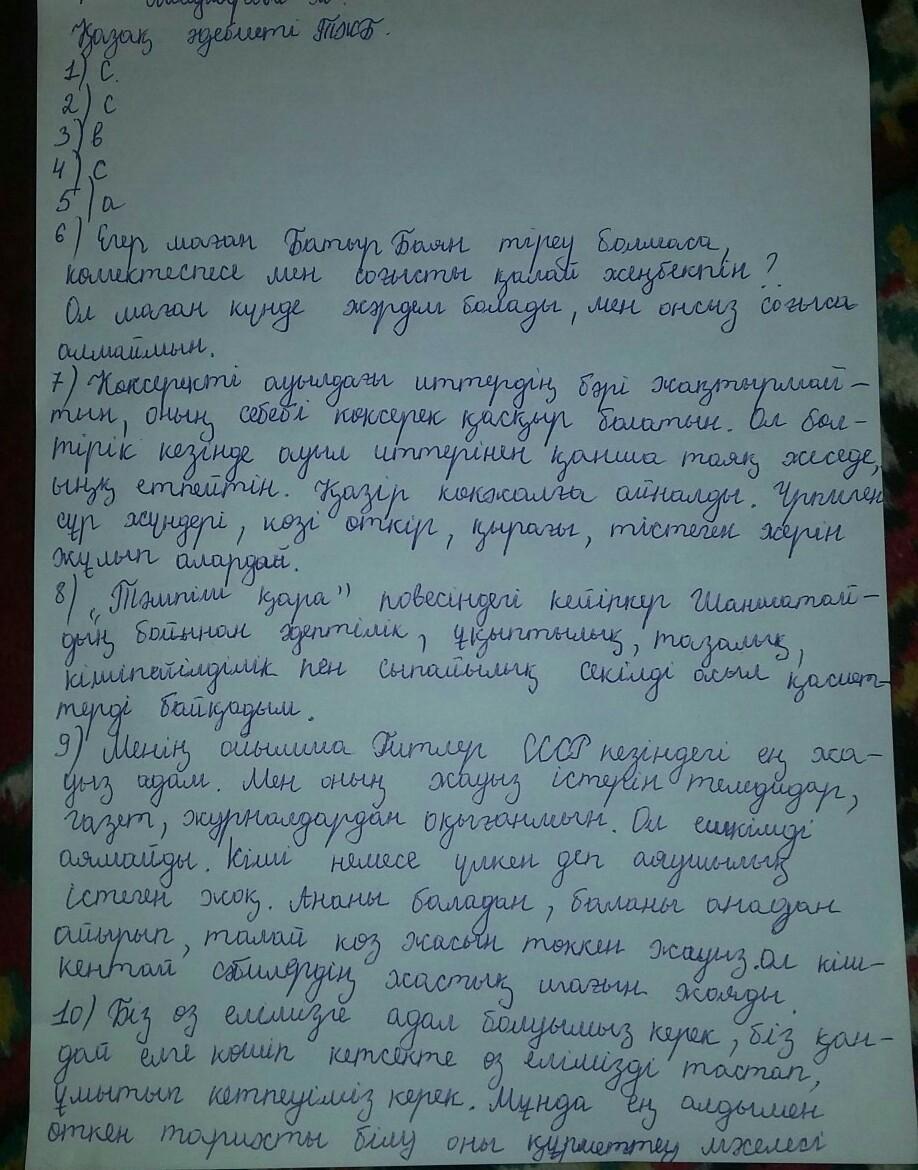 Қазақ әдебиеті ТЖБ.
1) С.
2) С
3) в
4) С
5) а
6) Егер маған Батыр Баян тіреу болмаса,
көмектеспесе мен соғысты қалай жеңбекпін?
Ол маған күнде жәрдем болады, мен онсыз соғыса
алмаймын.
7) Көксеректі ауылдағы иттердің бәрі жақтырмай-
тын, оның себебі көксерек қасқыр болатын. Ол бөл-
тірік кезінде ауыл иттерінен қанша таяқ жеседе,
ыңқ етпейтін. Қазір көкжалға айналды. Үрпиген
сұр жүндері, көзі өткір, қырағы, тістеген жерін
жұлып алардай.
8) „Тәмпіш қара" повесіндегі кейіпкер Шаншатай-
дың бойынан әдептілік, ұқыптылық, тазалық,
кішіпейілділік пен сыпайылық секілді асыл қасиет-
терді байқадым.
9) Менің ойымша Гитлер СССР кезіндегі ең жа-
уыз адам. Мен оның жауыз істерін теледидар,
газет, журналдардан оқығанмын. Ол ешкімді
аямайды. Кіші немесе үлкен деп аяушылық
істеген жоқ. Ананы баладан, баланы анадан
айырып, талай көз жасын төккен жауыз. Ол кіш-
кентай сәбилердің жастық шағын жояды.
10) Біз өз елімізге адал болуымыз керек, біз қан-
дай елге көшіп кетсекте өз елімізді тастап,
ұмытып кетпеуіміз керек. Мұнда ең алдымен
өткен тарихты білу оны құрметтеу мәселесі